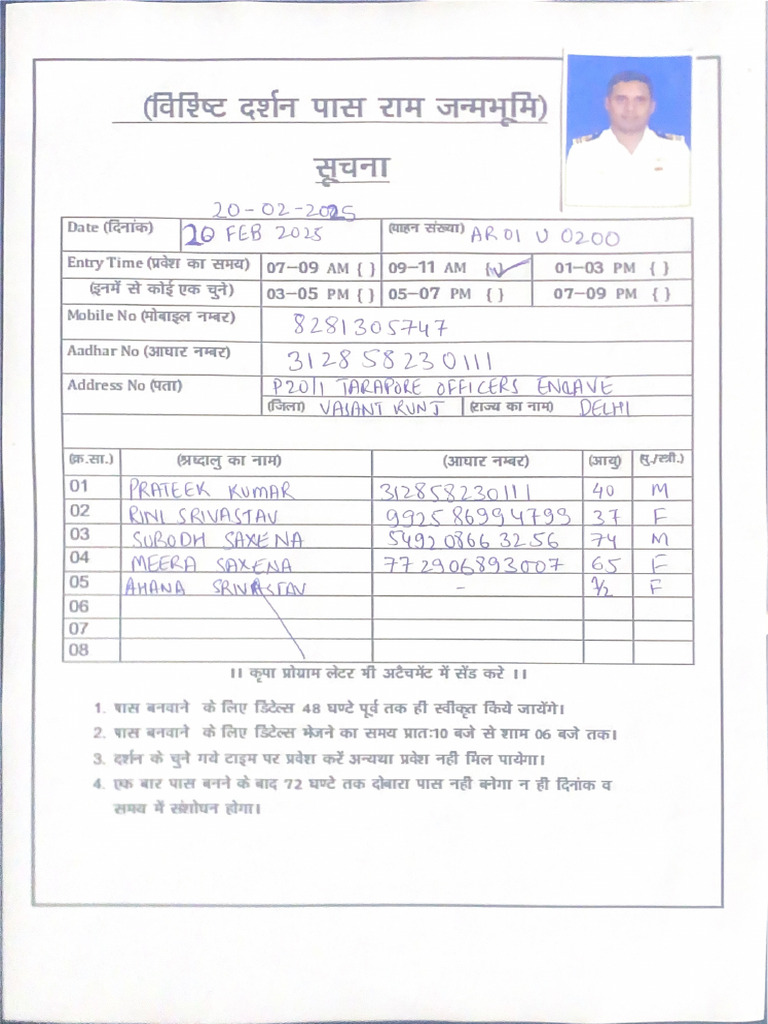 (विशिष्ट दर्शन पास राम जन्मभूमि)
सूचना
20-02-2025
Date (दिनांक) 20 FEB 2025 (वाहन संख्या) AR01 U 0200
Entry Time (प्रवेश का समय) 07–09 AM { } 09–11 AM {✓} 01–03 PM { }
(इनमें से कोई एक चुने) 03–05 PM { } 05–07 PM { } 07–09 PM { }
Mobile No (मोबाइल नम्बर) 8281305747
Aadhar No (आधार नम्बर) 312858230111
Address No (पता) P20/1 TARAPORE OFFICERS ENCLAVE
(जिला) VASANT KUNJ (राज्य का नाम) DELHI
(क्र.सा.) (श्रध्दालु का नाम) (आधार नम्बर) (आयु) (पु./स्त्री.)
01 PRATEEK KUMAR 312858230111 40 M
02 RINI SRIVASTAV 992586994799 37 F
03 SUBODH SAXENA 549208663256 74 M
04 MEERA SAXENA 772906893007 65 F
05 AHANA SRIVASTAV - 7½ F
06
07
08
।। कृपा प्रोग्राम लेटर भी अटैचमेंट में सेंड करे ।।
1. पास बनवाने के लिए डिटेल्स 48 घण्टे पूर्व तक ही स्वीकृत किये जायेंगे।
2. पास बनवाने के लिए डिटेल्स भेजने का समय प्रातः10 बजे से शाम 06 बजे तक।
3. दर्शन के चुने गये टाइम पर प्रवेश करें अन्यथा प्रवेश नही मिल पायेगा।
4. एक बार पास बनने के बाद 72 घण्टे तक दोबारा पास नही बनेगा न ही दिनांक व
समय में संशोधन होगा।